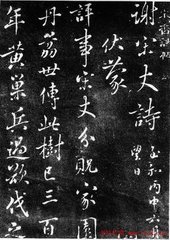 謝宋丈詩
至和丙申六月
望日
伏蒙
評事宋丈分貺家園
丹荔世傳此樹已三百
年黃巢兵過欲伐之